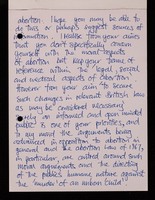 abortion. I hope you may be able to
do this or perhaps suggest sources of
information. I realise from your aims
that you don't specifically concern
yourself with the moral aspects
of abortion but keep your terms of
reference within the legal, social
and medical aspects of abortion
however from your aim to secure
such changes in relevant British law
as may be considered necessary
only an informed and open minded
public is one of your priorities, and
to my mind the arguments being
vocalised in opposition to abortion in
general and the abortion act of 1967,
in particular are centred around such
moral arguments and the directing
of the public's humane nature against
the 'murder of an unborn child'.